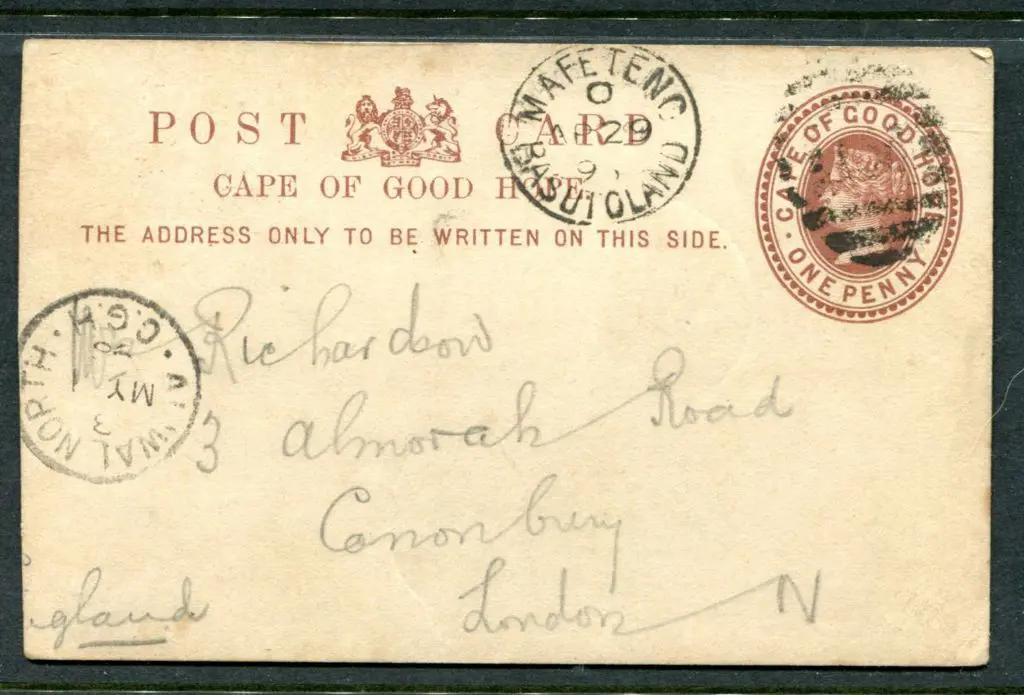 POST CARD
CAPE OF GOOD HOPE.
THE ADDRESS ONLY TO BE WRITTEN ON THIS SIDE.
MAFETENG
O
AP 29
9
BASUTOLAND
CAPE OF GOOD HOPE
ONE PENNY
ALIWAL NORTH · C.G.H ·
MY
3
Richardson
3 Almorah Road
Canonbury
London N
gland